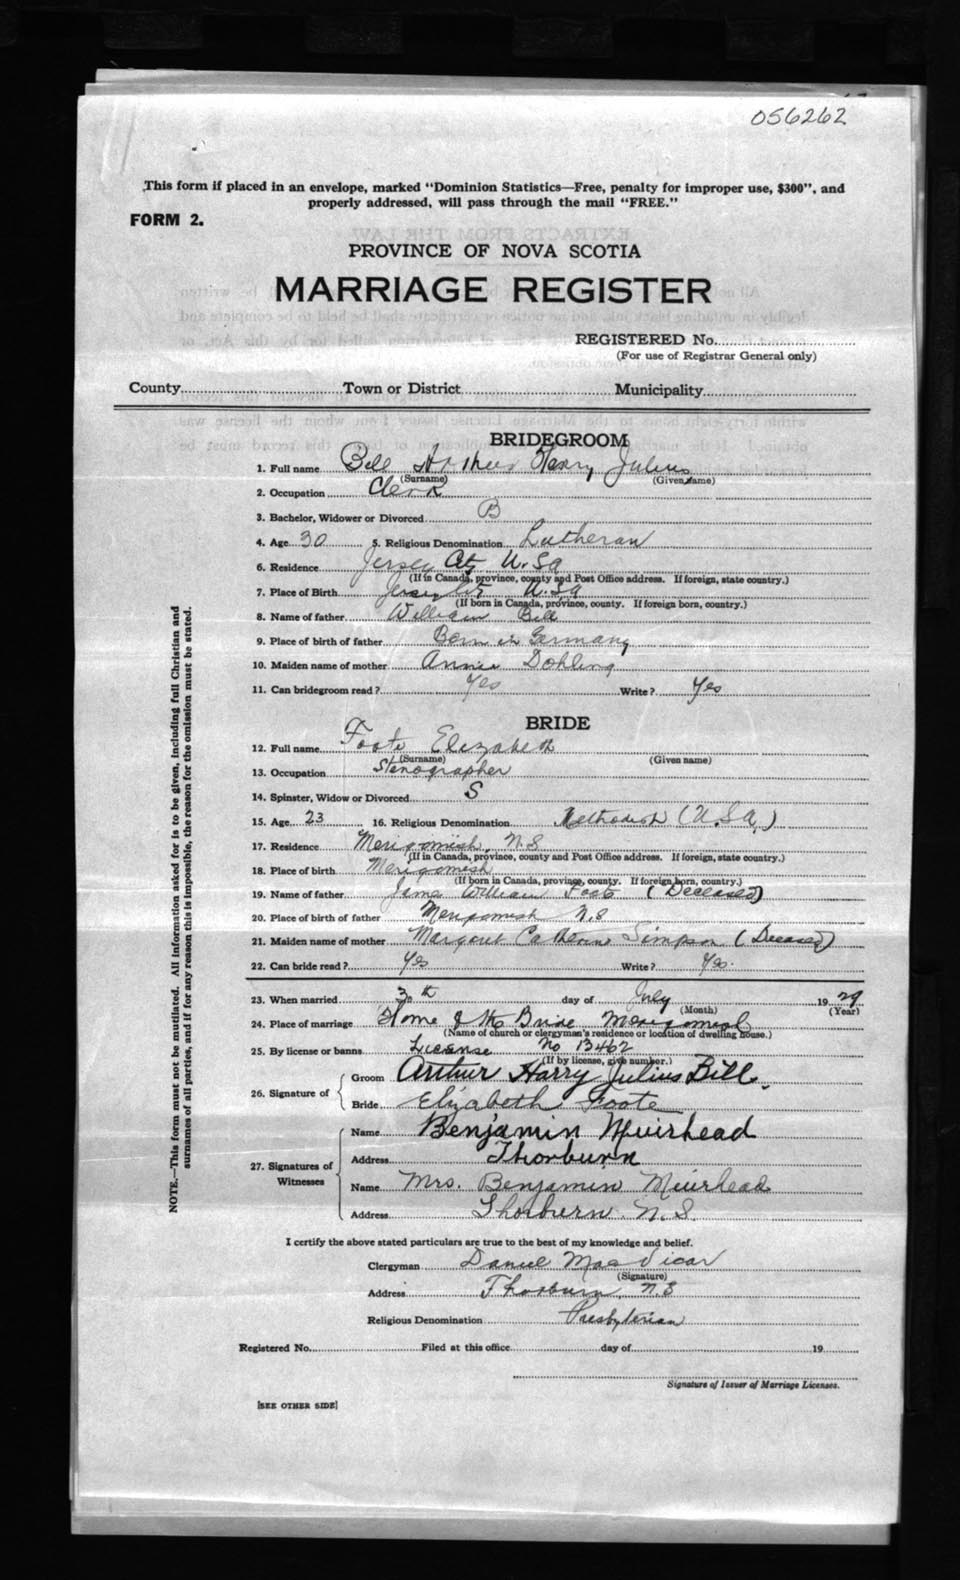 056262
This form if placed in an envelope, marked "Dominion Statistics—Free, penalty for improper use, $300", and
properly addressed, will pass through the mail "FREE."
FORM 2.
PROVINCE OF NOVA SCOTIA
MARRIAGE REGISTER
REGISTERED No.
(For use of Registrar General only)
County Town or District Municipality
BRIDEGROOM
1. Full name Bill Arthur Henry Julius
(Surname) (Given name)
2. Occupation Clerk
3. Bachelor, Widower or Divorced B
4. Age 30 5. Religious Denomination Lutheran
6. Residence Jersey City U.S.A
(If in Canada, province, county and Post Office address. If foreign, state country.)
7. Place of Birth Jersey City U.S.A
(If born in Canada, province, county. If foreign born, country.)
8. Name of father William Bill
9. Place of birth of father Born in Germany
10. Maiden name of mother Annie Dohling
11. Can bridegroom read? Yes Write? Yes
BRIDE
12. Full name Foote Elizabeth
(Surname) (Given name)
13. Occupation Stenographer
14. Spinster, Widow or Divorced S
15. Age 23 16. Religious Denomination Methodist (U.S.A.)
17. Residence Merigomish, N.S
(If in Canada, province, county and Post Office address. If foreign, state country.)
18. Place of birth Merigomish
(If born in Canada, province, county. If foreign born, country.)
19. Name of father James William Foote (Deceased)
20. Place of birth of father Merigomish N.S
21. Maiden name of mother Margaret Catherine Simpson (Deceased)
22. Can bride read? Yes Write? Yes.
23. When married 30th day of July 1929
(Month) (Year)
24. Place of marriage Home of the Bride Merigomish
(Name of church or clergyman's residence or location of dwelling house.)
25. By license or banns License No 13462
(If by license, give number.)
26. Signature of Groom Arthur Harry Julius Bill.
Bride Elizabeth Foote
27. Signatures of Witnesses
Name Benjamin Muirhead
Address Thorburn
Name Mrs. Benjamin Muirhead
Address Thorburn N.S.
I certify the above stated particulars are true to the best of my knowledge and belief.
Clergyman Daniel MacVicar
(Signature)
Address Thorburn, N.S
Religious Denomination Presbyterian
Registered No. Filed at this office day of 19
Signature of Issuer of Marriage Licenses.
[SEE OTHER SIDE]
NOTE.—This form must not be mutilated. All information asked for is to be given, including full Christian and
surnames of all parties, and if for any reason this is impossible, the reason for the omission must be stated.